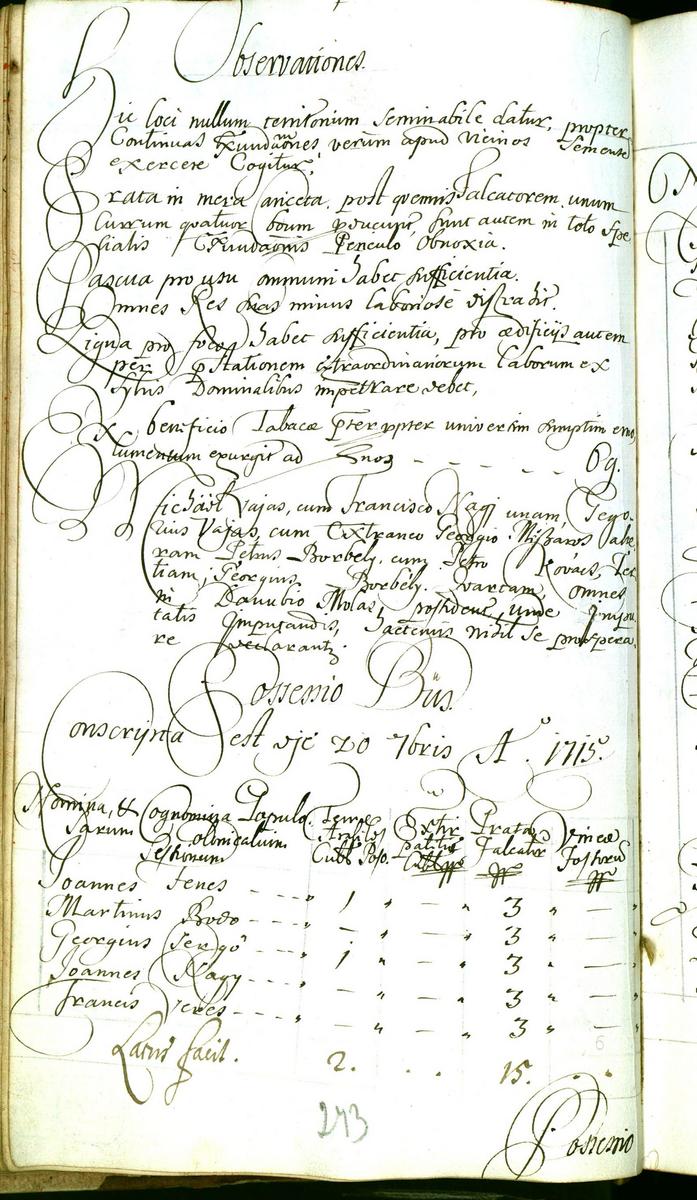 Observationes
Hic loci nullum territorium seminabile datur, propter
Continuas Exundaões verum apud vicinos Sementem
exercere Cogitur;
Prata in mera ariceta, post quemvis falcatorem unum
Currum quatuor boum producunt, sunt autem in toto Spe
cialis Exundaõnis Periculo Obnoxia.
Pascua pro usu ommuni habet sufficientia.
Omnes Res suas minus laboriose distrahit.
Ligna pro foco habet sufficientia, pro ædificijs autem
per pstationem extraordinariorum laborum ex
Sylvis Dominalibus impetrare debet,
Ex beneficio Tabacæ universim sumptim emo
lumentum exurgit ad hnos - - - - - 69.
Michäel Vajas, cum Francisco Nagj unam, Grego-
rius Vajas, cum Extraneo Georgio Mészáros Alte
ram Petrus Borbély, cum Petro Kovács, Ter
tiam; Georgius Borbély. quartam, omnes
in Danubio Molas, possident, unde Inju
tatis Impugandis, hactenus nihil se prospera
re declarant.
Possessio Büs
Conscripta est die 20 7bris Aº. 1715.
Nomina, & Cognomina Populo
sarum Sessionum
Prata
Falcator
Vineæ
Fossorum
Joannes Fenes - - - " 1 " - " 3 " - "
Martinus Bodo - - - " - " - " 3 " - "
Georgius Gergö - - - " 1 " - " 3 " - "
Joannes Nagy - - - " - " - " 3 " - "
Francis Veres - - - " - " - " 3 " - "
Latus facit. 2. . . 15. " "
243
Possessio